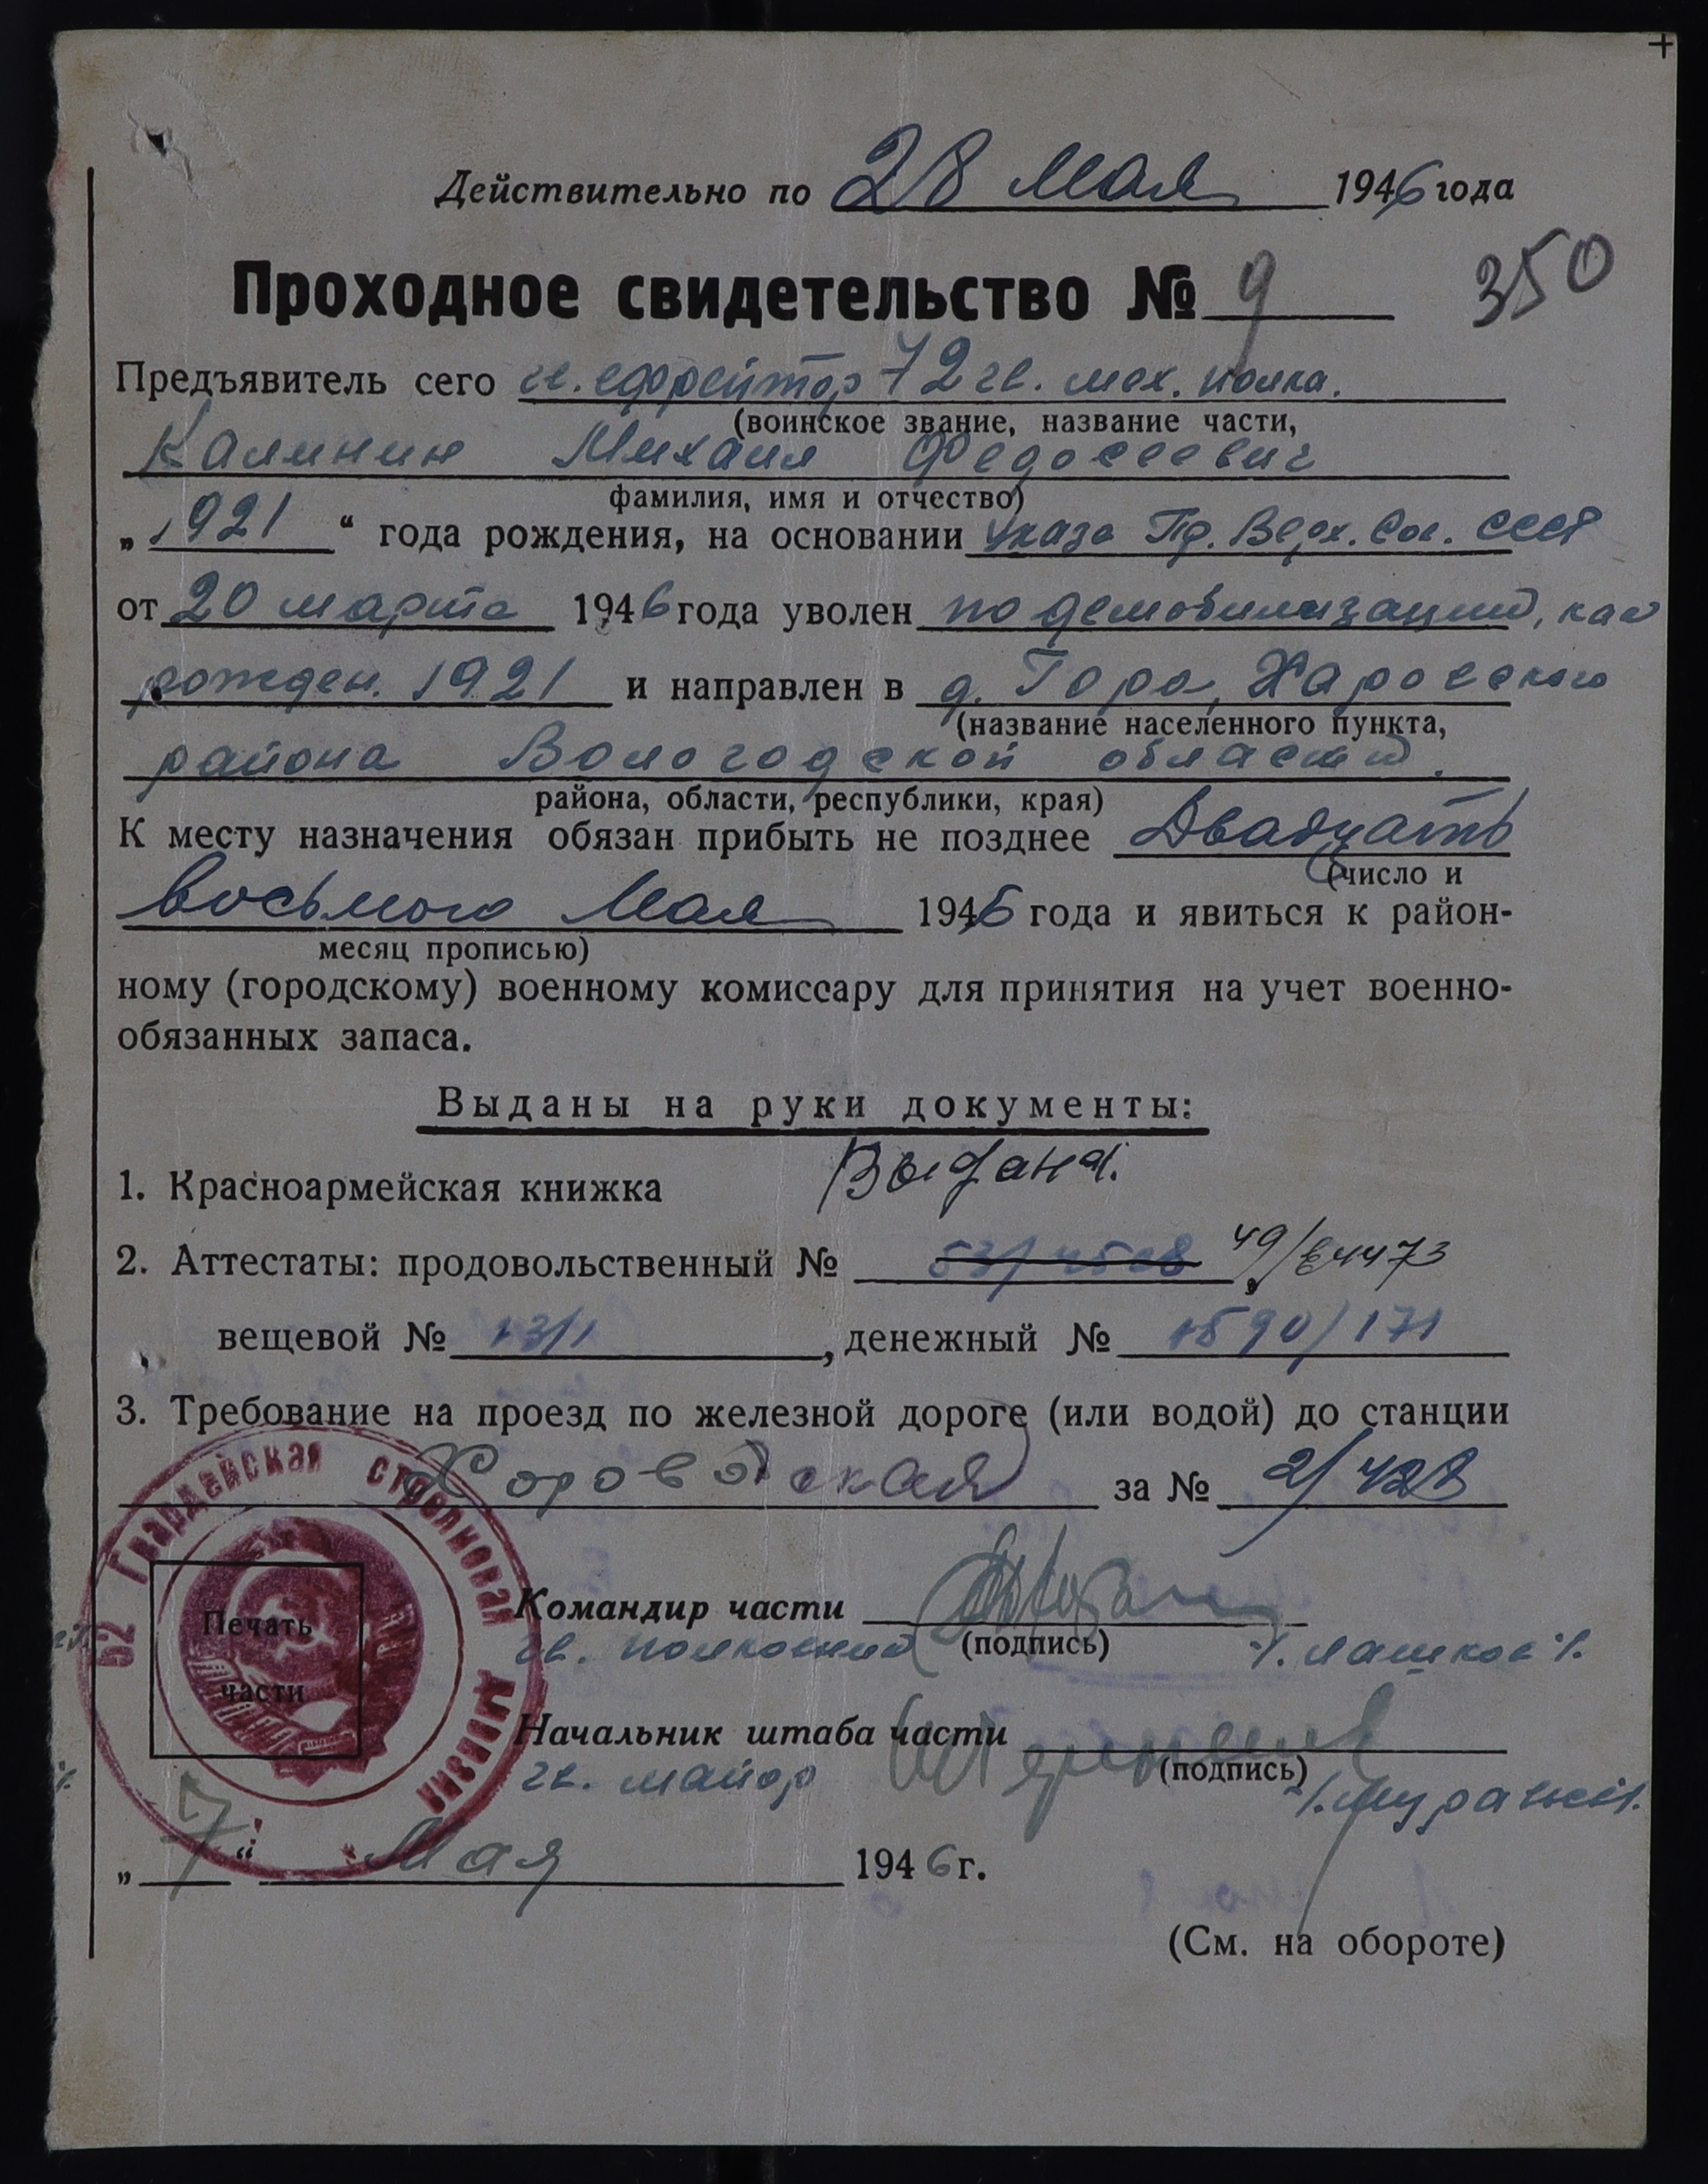 Действительно по 28 Мая 1946 года
Проходное свидетельство № 9
350
Предъявитель сего гв. ефрейтор 72 гв. мех. полка.
(воинское звание, название части,
Калинин Михаил Федосеевич
фамилия, имя и отчество)
„1921“ года рождения, на основании Указа Пр. Верх. Сов. СССР
от 20 марта 1946 года уволен по демобилизации, как
рожден. 1921 и направлен в д. Гора, Харовского
(название населенного пункта,
района Вологодской области.
района, области, республики, края)
К месту назначения обязан прибыть не позднее Двадцать
(число и
восьмого Мая 1946 года и явиться к район-
месяц прописью)
ному (городскому) военному комиссару для принятия на учет военно-
обязанных запаса.
Выданы на руки документы:
1. Красноармейская книжка Выдана.
2. Аттестаты: продовольственный №
вещевой № 13/1, денежный № 1590/171
3. Требование на проезд по железной дороге (или водой) до станции
Харовская за № 2/428
62 Гвардейская стрелковая дивизия
Печать
части
Командир части
гв. полковник (подпись) /. Лашков /.
Начальник штаба части
гв. майор (подпись)
„7“ Мая 1946 г.
(См. на обороте)